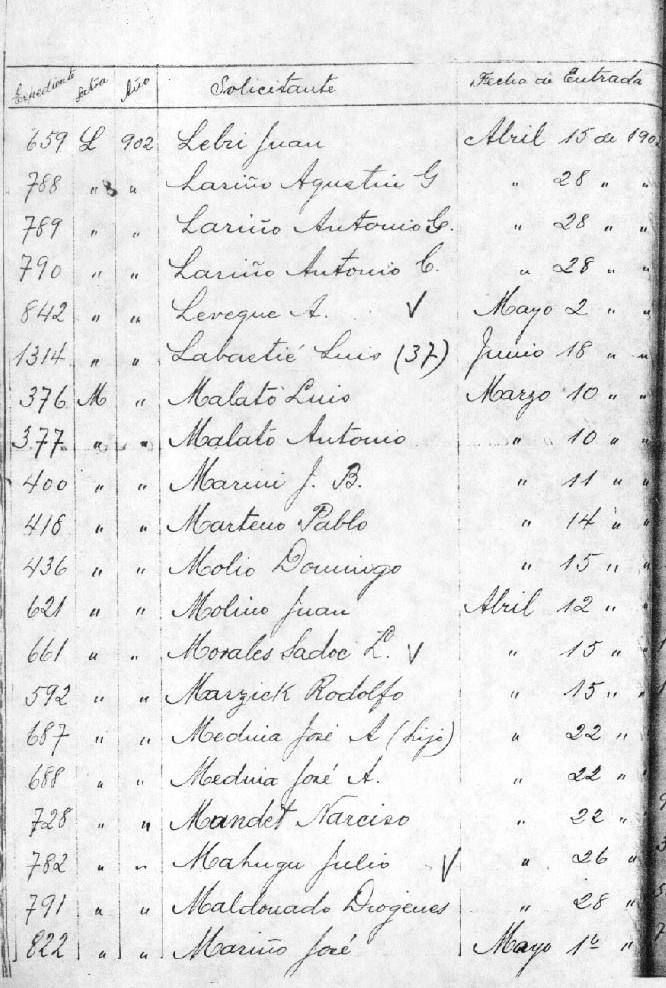 Expediente Letra Año Solicitante Fecha de Entrada
659 L 902 Lebri Juan Abril 15 de 190
788 " " Lariño Agustin G " 28 " "
789 " " Lariño Antonio G. " 28 " "
790 " " Lariño Antonio C. " 28 " "
842 " " Leveque A. V Mayo 2 " "
1314 " " Labastié Luis (37) Junio 18 " "
376 M " Malató Luis Marzo 10 " "
377 " " Malató Antonio " 10 " "
400 " " Marini J. B. " 11 " "
418 " " Marteno Pablo " 14 " "
436 " " Molio Domingo " 15 " "
621 " " Molino Juan Abril 12 " "
661 " " Morales Sadoc L. V " 15 " "
592 " " Marzick Rodolfo " 15 " "
687 " " Medina José A (hijo) " 22 "
688 " " Medina José A. " 22 "
728 " " Mandet Narciso " 22 "
782 " " Mahugu Julio V " 26 "
791 " " Maldonado Diogenes " 28 "
822 " " Mariño José Mayo 1º "